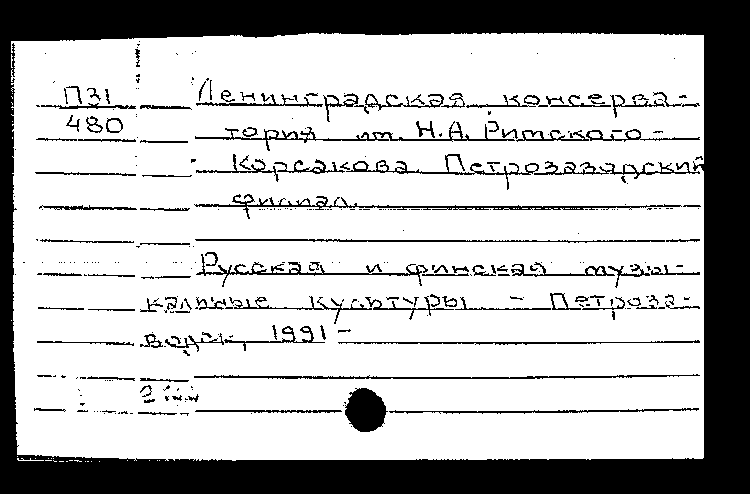 П31 Ленинградская консерва-
480 тория им. Н.А. Римского-
Корсакова. Петрозаводский
филиал.
Русская и финская музы-
кальные культуры. - Петроза-
водск, 1991 -